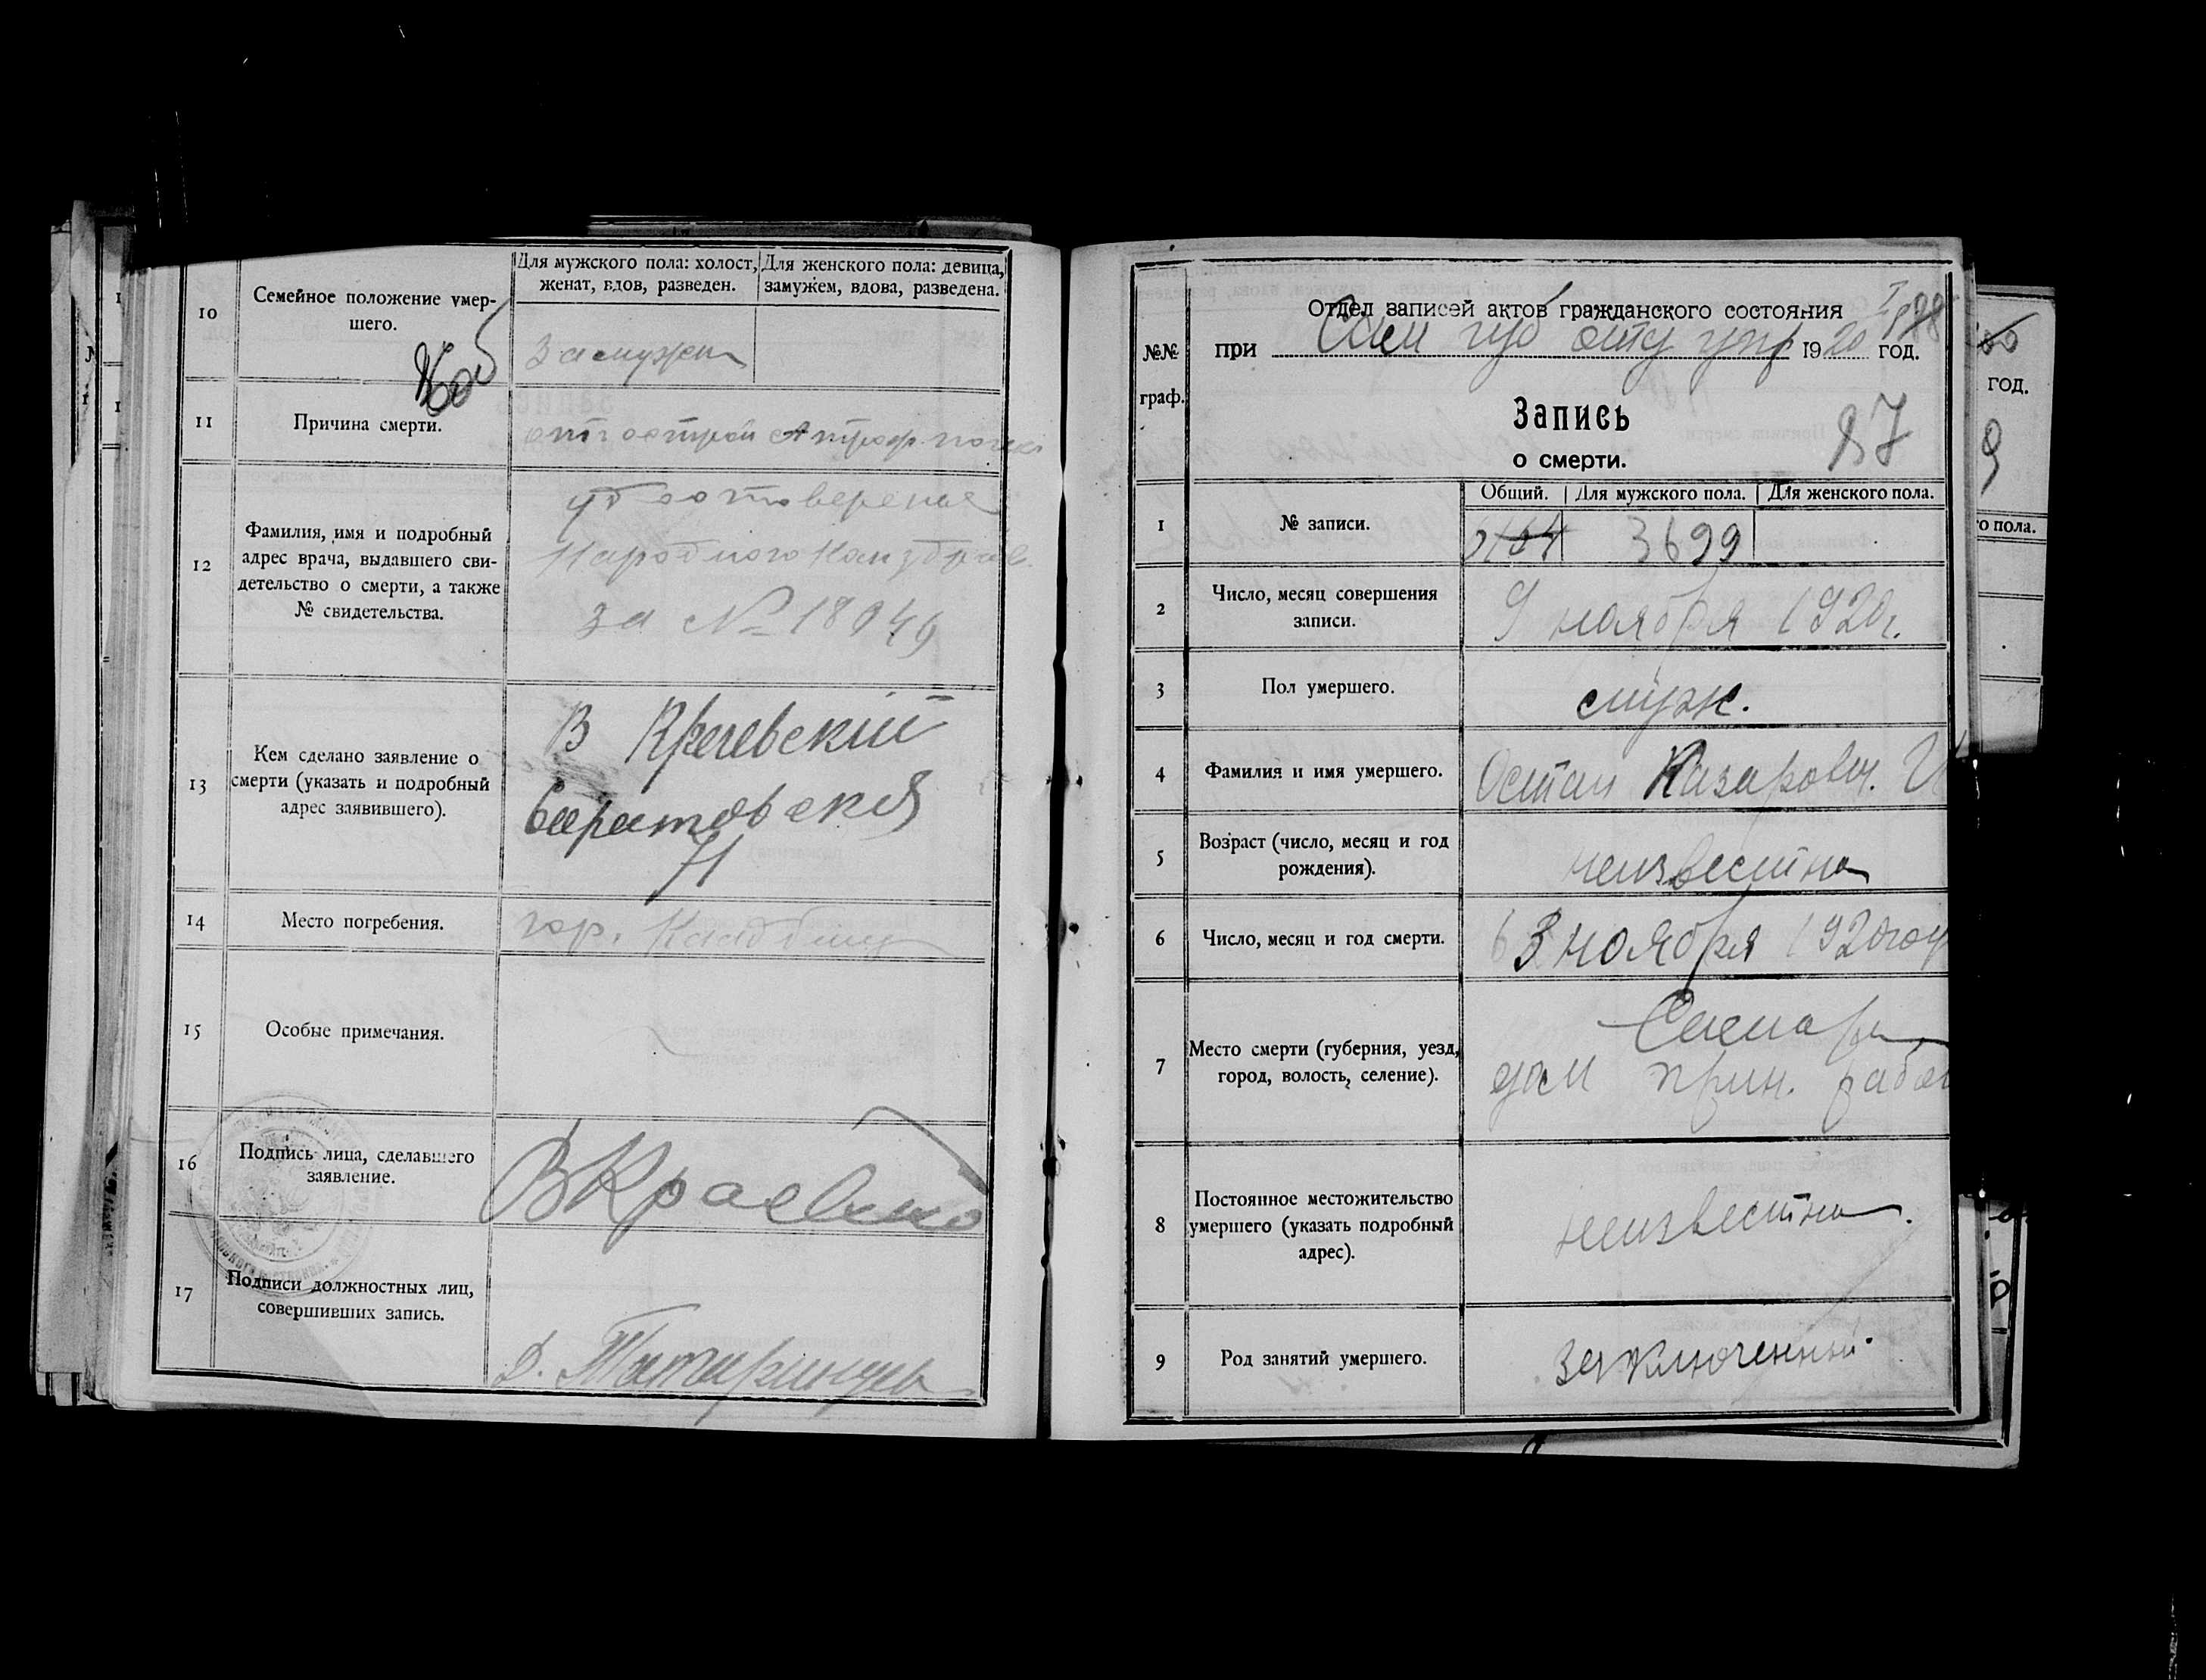 10
Семейное положение умер-
шего.
Для мужского пола: холост,
женат, вдов, разведен.
Для женского пола: девица,
замужем, вдова, разведена.
замужем
11
Причина смерти.
от острой Атроф.
12
Фамилия, имя и подробный
адрес врача, выдавшего сви-
детельство о смерти, а также
№ свидетельства.
удостоверение
Народного
за №
13
Кем сделано заявление о
смерти (указать и подробный
адрес заявившего).
В
Саратовская
71
14
Место погребения.
гор. Кладбищ
15
Особые примечания.
16
Подпись лица, сделавшего
заявление.
17
Подписи должностных лиц,
совершивших запись.
№№
граф.
Отдел записей актов гражданского состояния
при Сам губ отд упр 1920 год.
Запись
о смерти.
87
1
№ записи.
Общий.
Для мужского пола.
Для женского пола.
3699
2
Число, месяц совершения
записи.
9 ноября 1920г.
3
Пол умершего.
муж.
4
Фамилия и имя умершего.
Остап Назарович.
5
Возраст (число, месяц и год
рождения).
неизвестна
6
Число, месяц и год смерти.
3 ноября 1920 год
7
Место смерти (губерния, уезд,
город, волость, селение).
Самара
дом прин. работ
8
Постоянное местожительство
умершего (указать подробный
адрес).
неизвестна.
9
Род занятий умершего.
заключенный
год.
го пола.